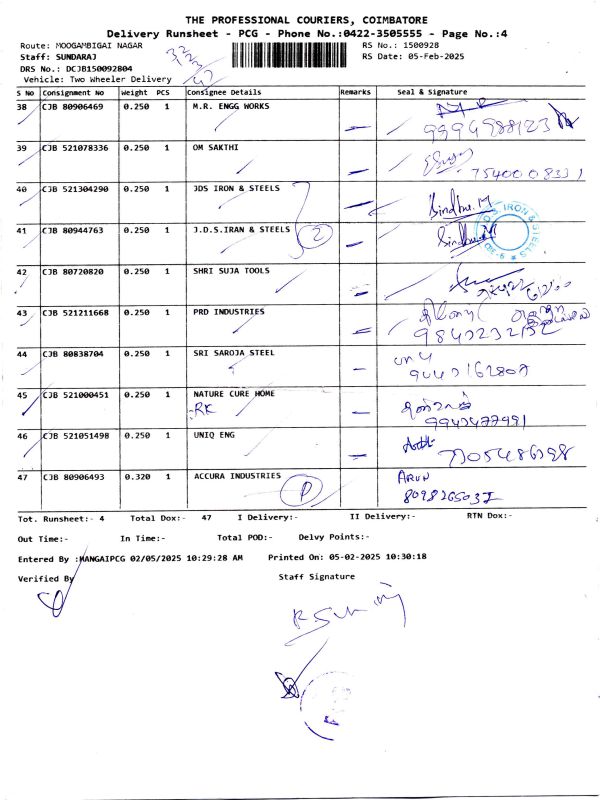 THE PROFESSIONAL COURIERS, COIMBATORE
Delivery Runsheet - PCG - Phone No.:0422-3505555 - Page No.:4
Route: MOOGAMBIGAI NAGAR RS No.: 1500928
Staff: SUNDARAJ RS Date: 05-Feb-2025
DRS No.: DCJB150092804
Vehicle: Two Wheeler Delivery
S No Consignment No Weight PCS Consignee Details Remarks Seal & Signature
38 CJB 80906469 0.250 1 M.R. ENGG WORKS
39 CJB 521078336 0.250 1 OM SAKTHI
40 CJB 521304290 0.250 1 JDS IRON & STEELS Sindhu.M
41 CJB 80944763 0.250 1 J.D.S.IRAN & STEELS 2 Sindhu.M
42 CJB 80720820 0.250 1 SHRI SUJA TOOLS
43 CJB 521211668 0.250 1 PRD INDUSTRIES
44 CJB 80838704 0.250 1 SRI SAROJA STEEL
45 CJB 521000451 0.250 1 NATURE CURE HOME
RK 9943477991
46 CJB 521051498 0.250 1 UNIQ ENG
47 CJB 80906493 0.320 1 ACCURA INDUSTRIES P ARUN
Tot. Runsheet:- 4 Total Dox:- 47 I Delivery:- II Delivery:- RTN Dox:-
Out Time:- In Time:- Total POD:- Delvy Points:-
Entered By :MANGAIPCG 02/05/2025 10:29:28 AM Printed On: 05-02-2025 10:30:18
Verified By Staff Signature